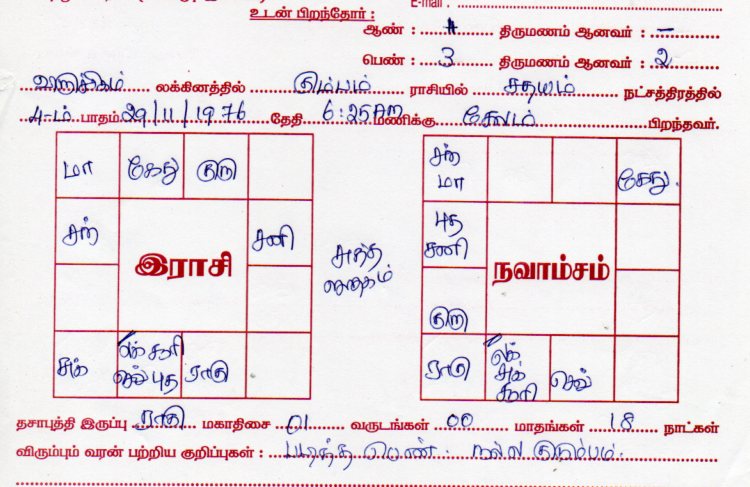 E-mail :
உடன் பிறந்தோர் :
ஆண் : 1 திருமணம் ஆனவர் : –
பெண் : 3 திருமணம் ஆனவர் : 2
லக்கினத்தில் கும்பம் ராசியில் சதயம் நட்சத்திரத்தில்
4-ம் பாதம் 29/11/1976 தேதி 6:25AM மணிக்கு சேலம் பிறந்தவர்.
மா கேது குரு
சந் சனி
இராசி
சுக் லக் சூரி ராகு
செவ் புத
சந்
மா கேது.
புத
சனி
நவாம்சம்
குரு
ராகு லக் சுக் சூரி செவ்
தசாபுத்தி இருப்பு ராகு மகாதிசை 01 வருடங்கள் 00 மாதங்கள் 18 நாட்கள்
விரும்பும் வரன் பற்றிய குறிப்புகள் : படித்த பெண். நல்ல குடும்பம்.